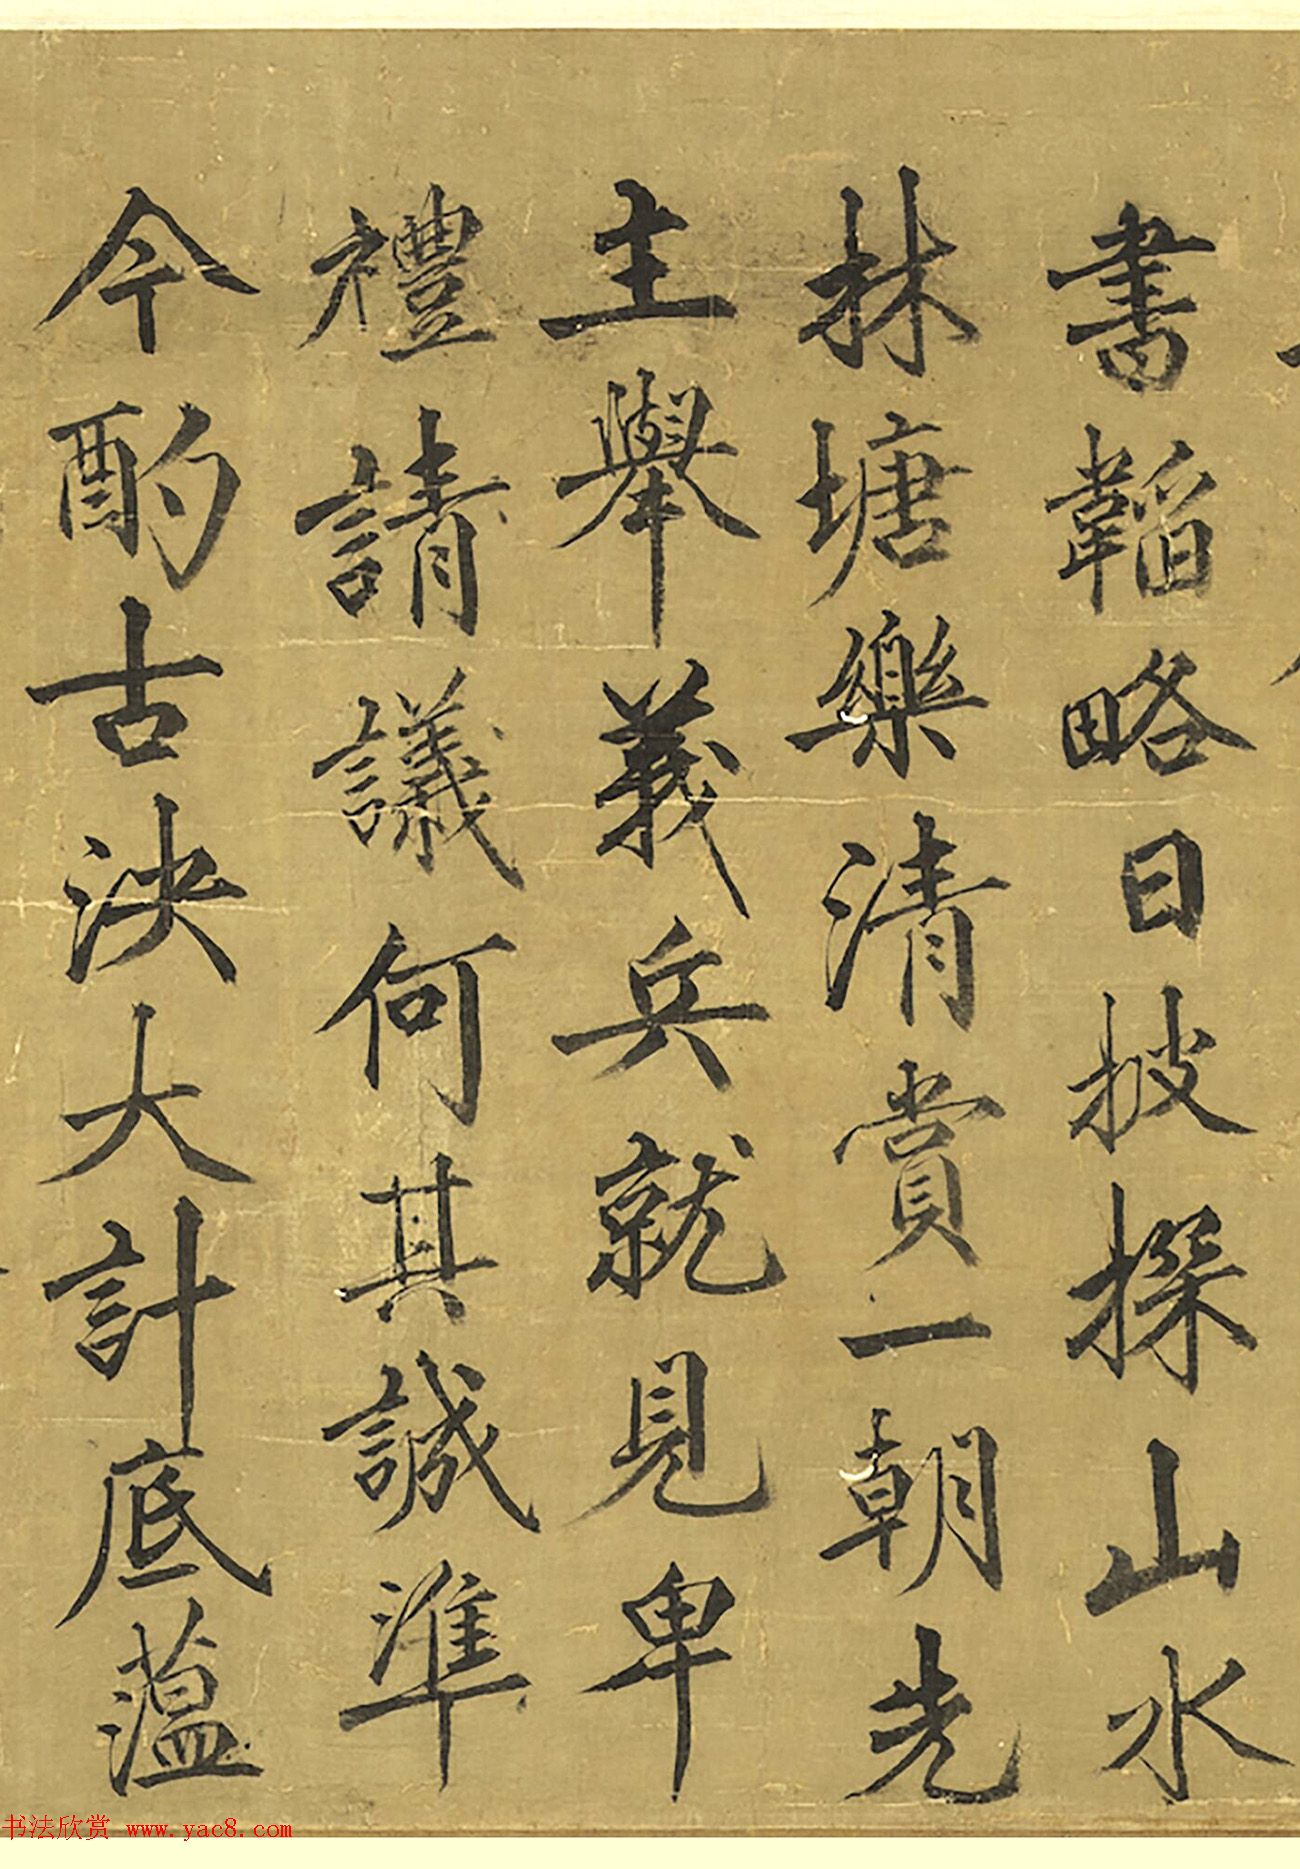 書韜略日披探山水
林塘樂清賞一朝先
主舉義兵就見卑
禮請議何其誠準
今酌古決大計底蘊
书法欣赏 www.yac8.com